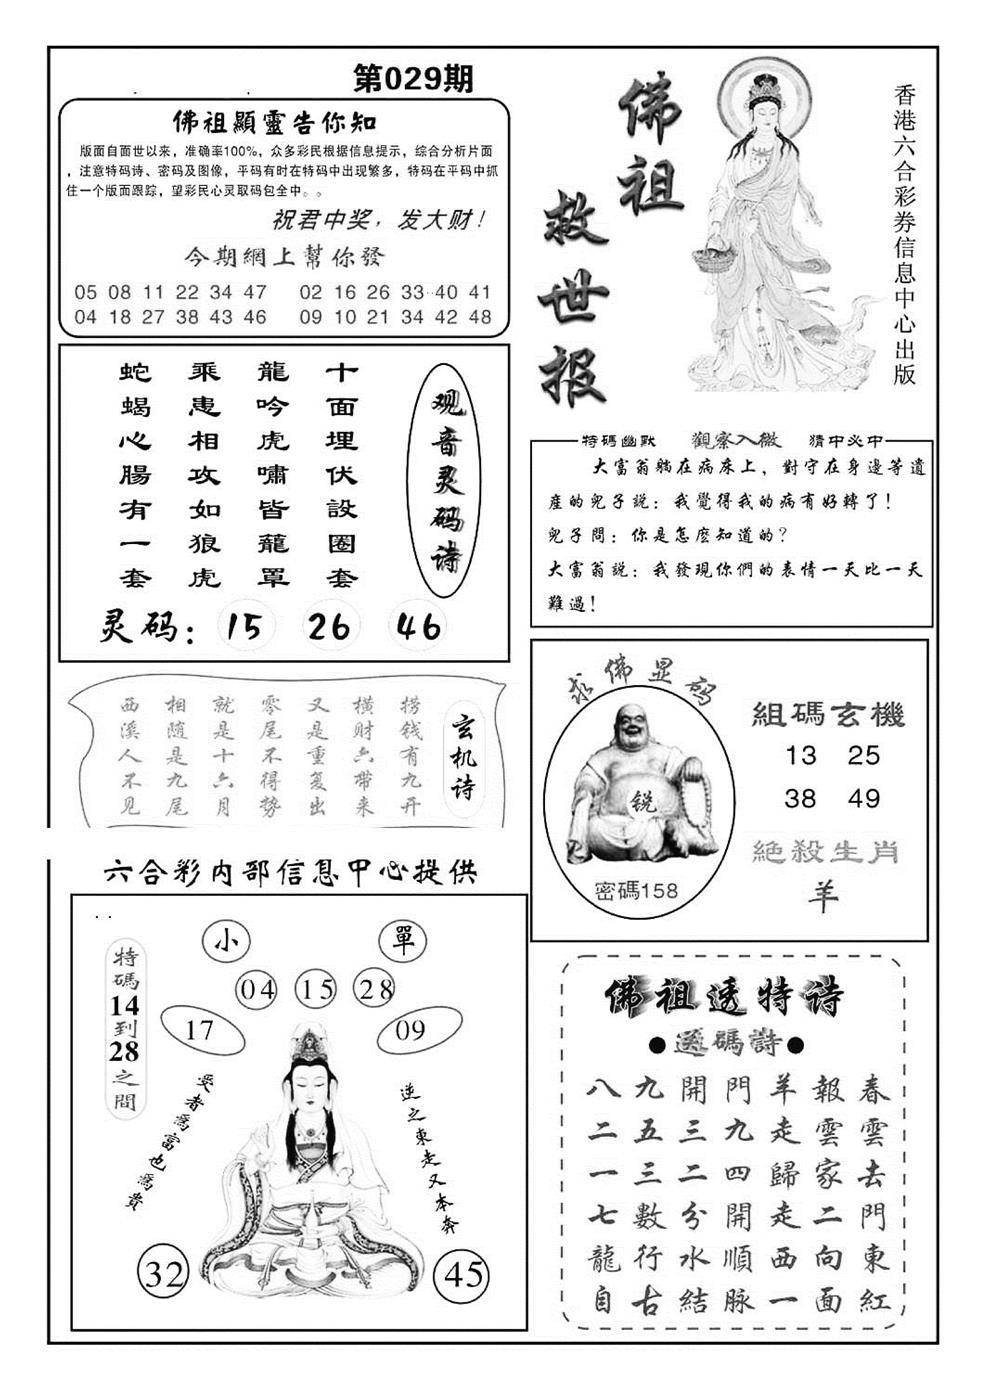 第029期
佛祖顯靈告你知
版面自面世以来，准确率100%，众多彩民根据信息提示，综合分析片面
，注意特码诗、密码及图像，平码有时在特码中出现繁多，特码在平码中抓
住一个版面跟踪，望彩民心灵取码包全中。。
祝君中奖，发大财！
今期網上幫你發
05 08 11 22 34 47 02 16 26 33 40 41
04 18 27 38 43 46 09 10 21 34 42 48
佛祖
救世报
香港六合彩券信息中心出版
观音灵码诗
十面埋伏設圈套
龍吟虎嘯皆蘢罩
乘患相攻如狼虎
蛇蝎心腸有一套
灵码：15 26 46
特碼幽默 觀察入微 猜中必中
大富翁躺在病床上，對守在身邊等遺
産的兒子説：我覺得我的病有好轉了！
兒子問：你是怎麽知道的？
大富翁説：我發現你們的表情一天比一天
難過！
玄机诗
捞钱有九开
横财六帶来
又是重复出
零尾不得势
就是十六月
相隨是九尾
西溪人不见
求佛显码
锐
密碼158
組碼玄機
13 25
38 49
絶殺生肖
羊
六合彩内部信息中心提供
特碼14到28之間
小 單
04 15 28
17 09
受者爲富也爲貴
逆之東走又本奔
32 45
佛祖透特诗
●送碼詩●
八九開門羊報春
二五三九走雲雲
一三二四歸家去
七數分開走二門
龍行水順西向東
自古結脉一面紅